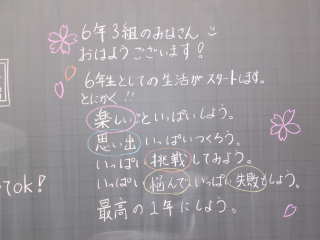 6年3組のみなさん
おはようございます！
6年生としての生活がスタートします。
とにかく!!
楽しいこといっぱいしよう。
思い出いっぱいつくろう。
いっぱい挑戦してみよう。
いっぱい悩んでいっぱい失敗もしよう。
最高の1年にしよう。
ok!